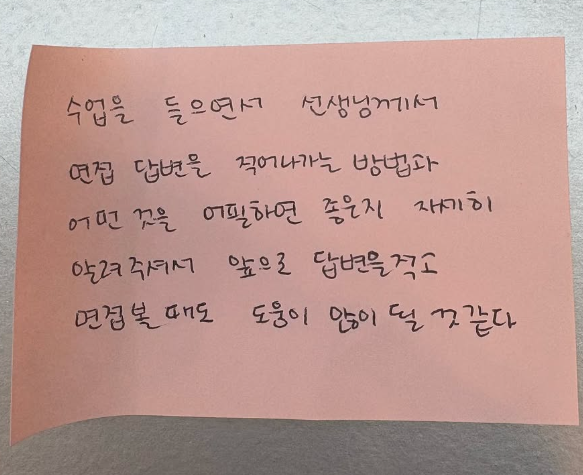 수업을 들으면서 선생님께서
면접 답변을 적어나가는 방법과
어떤 것을 어필하면 좋은지 자세히
알려주셔서 앞으로 답변을적고
면접볼 때도 도움이 많이 될 것 같다